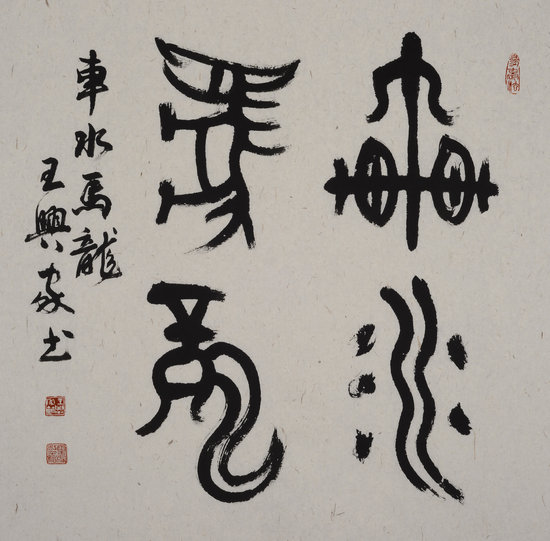 車水
馬龍
車水馬龍
王興家书